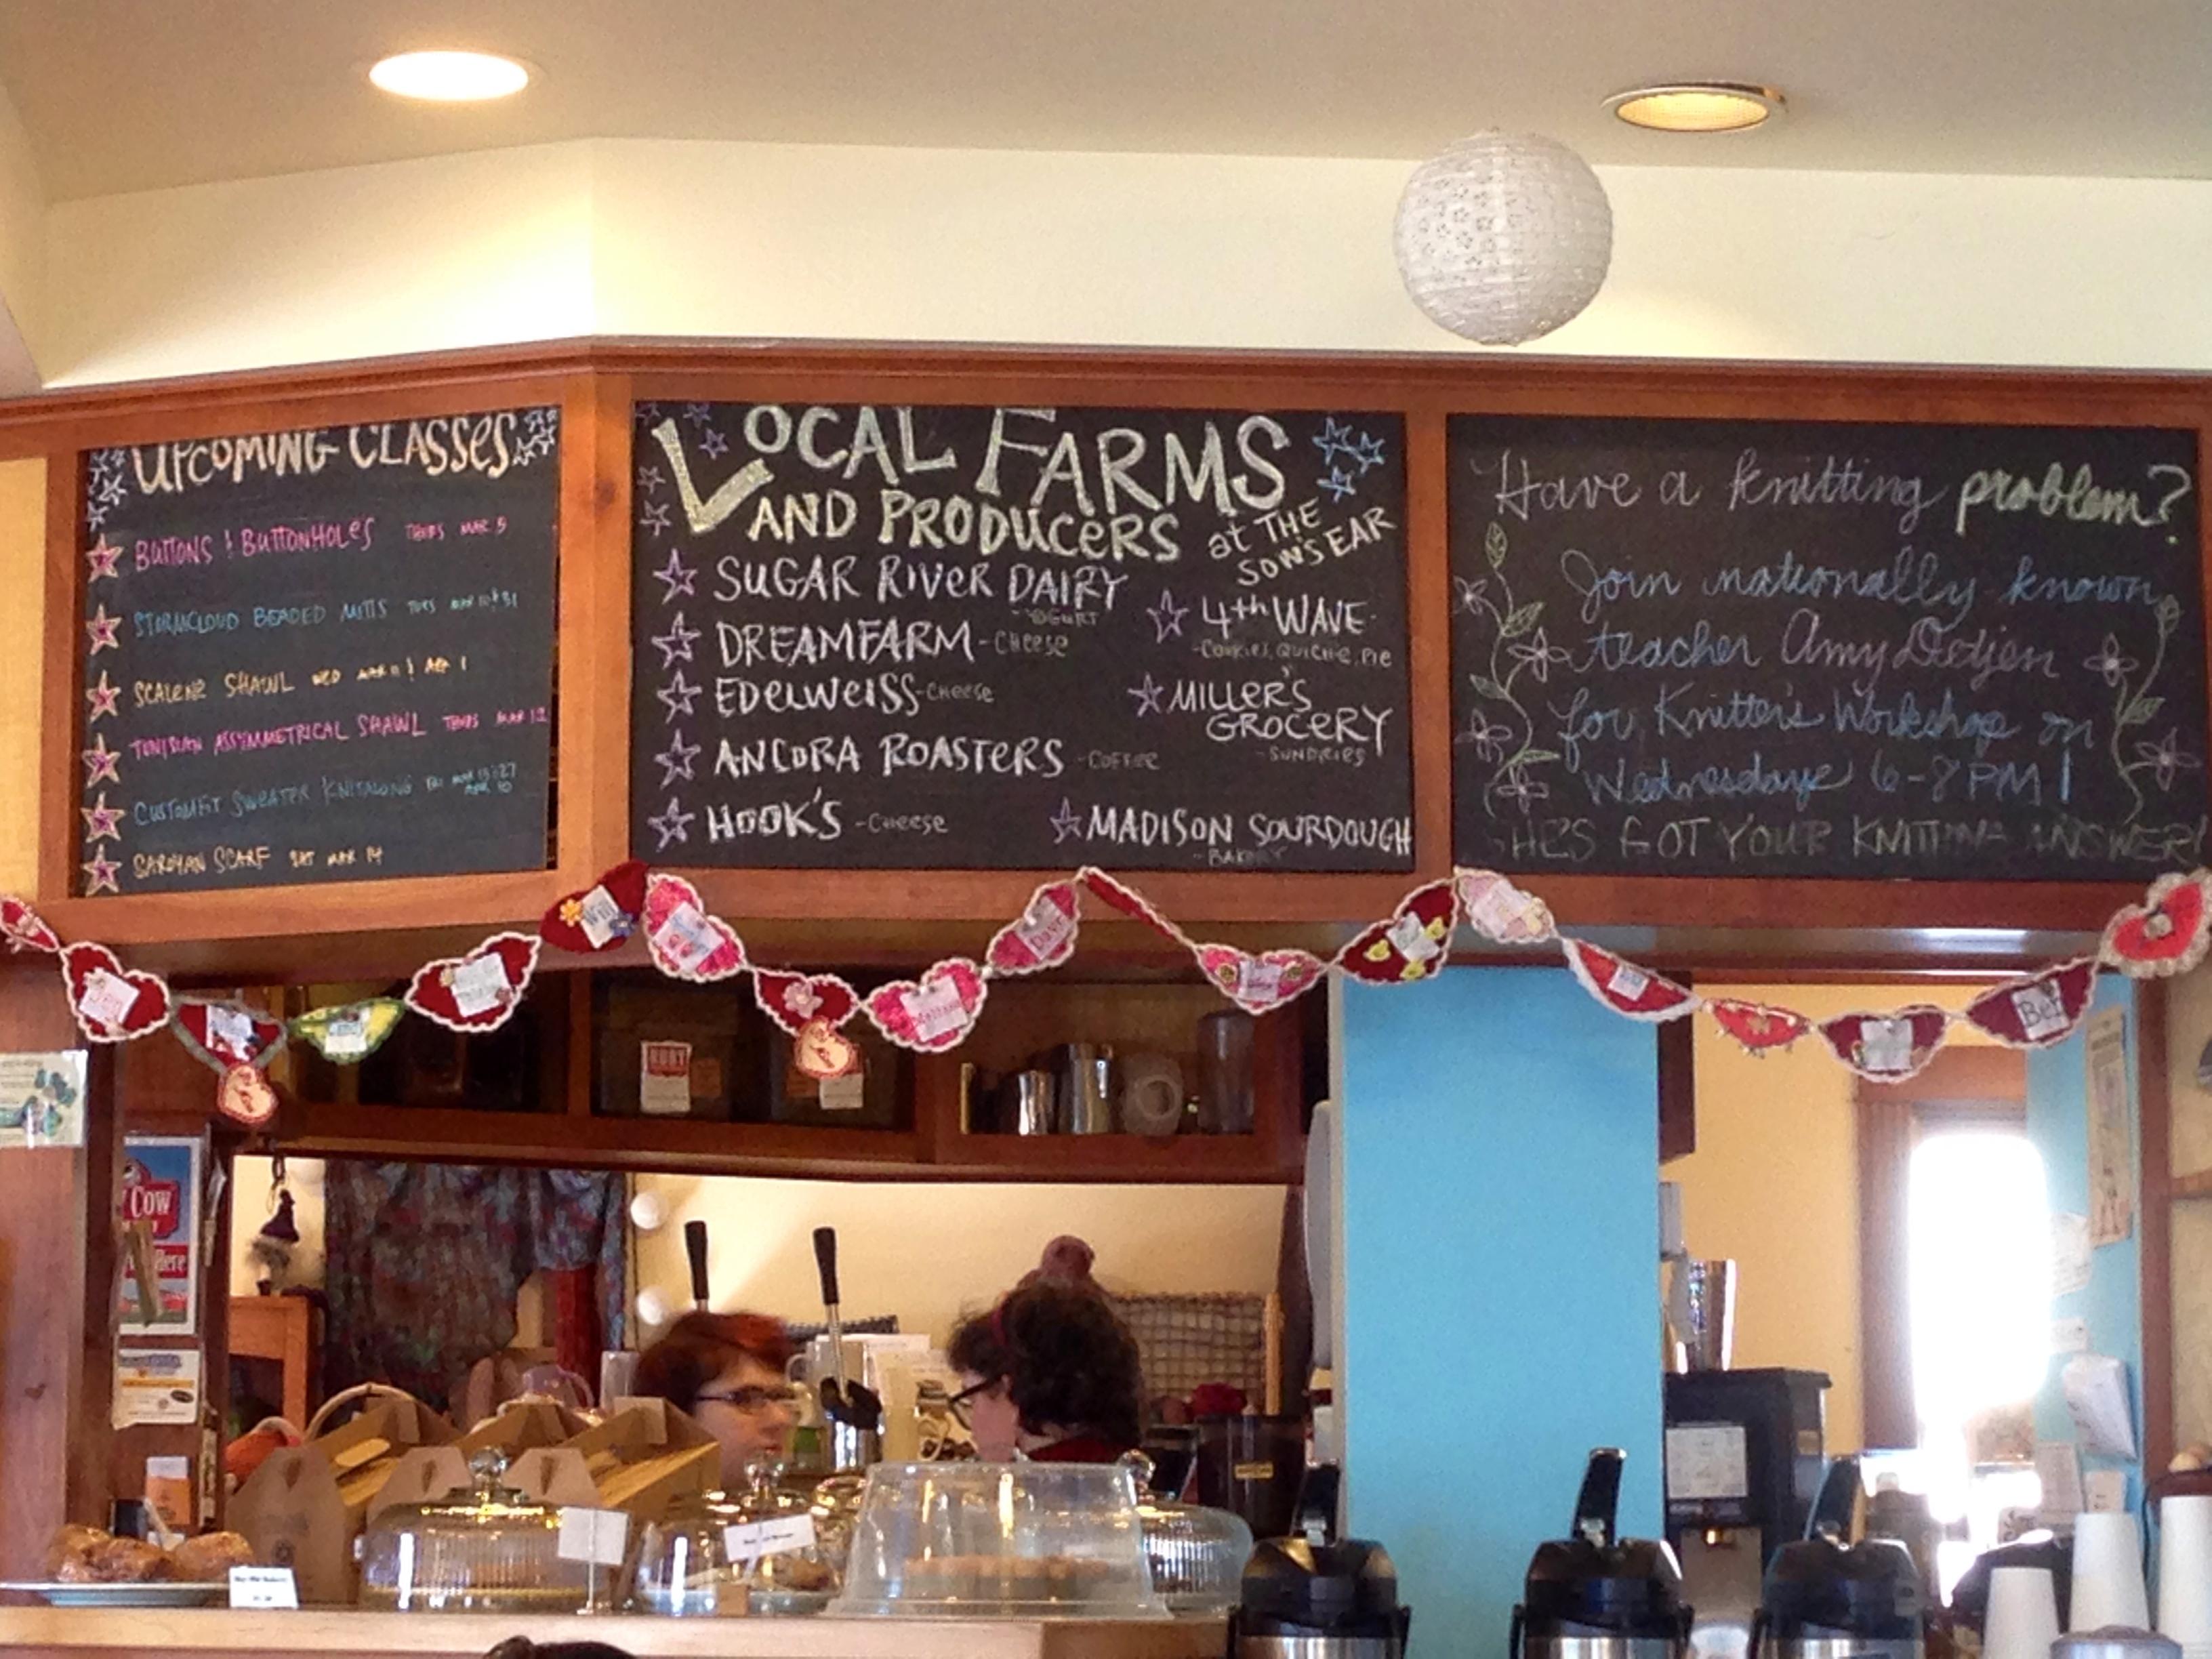 UPCOMING CLASSES
BUTTONS & BUTTONHOLES THURS MAR 5
STORMCLOUD BEADED MITTS TUES MAR 10 & 31
SCALENE SHAWL WED MAR 11 & APR 1
TUNISIAN ASSYMMETRICAL SHAWL THURS MAR 12
CUSTOMFIT SWEATER KNITALONG FRI MAR 13 & 27
APR 10
SAROYAN SCARF SAT MAR 14
LOCAL FARMS
AND PRODUCERS
at THE
SOW'S EAR
SUGAR RIVER DAIRY
YOGURT
DREAMFARM - CHEESE
EDELWEISS - CHEESE
ANCORA ROASTERS - COFFEE
HOOK'S - CHEESE
4th WAVE
- COOKIES, QUICHE, PIE
MILLER'S
GROCERY
- SUNDRIES
MADISON SOURDOUGH
- BAKERY
Have a knitting problem?
Join nationally known
teacher Amy Detjen
for Knitter's Workshop on
Wednesdays 6-8 PM!
SHE'S GOT YOUR KNITTING ANSWER!
Jen
Will
Dave
Bev
COW
Here
RUBY